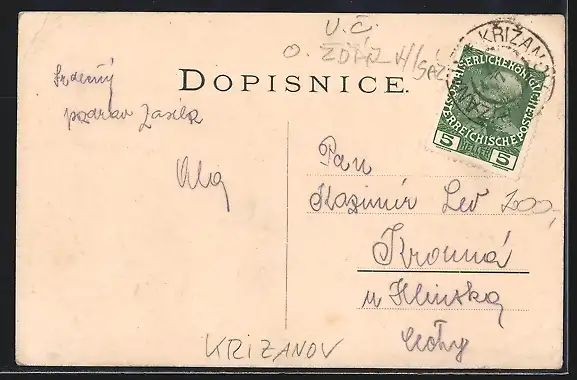 U. Č.
O. ŽĎÁR N/SÁZ.
KŘIŽAN
DOPISNICE.
KAIS. KÖNIGLICHE
ÖSTERREICHISCHE POST
5 HELLER 5
Srdečný
pozdrav zasílá
Pan
Kazimír Lev
Krouná
u Hlinska
Čechy
KŘIŽANOV